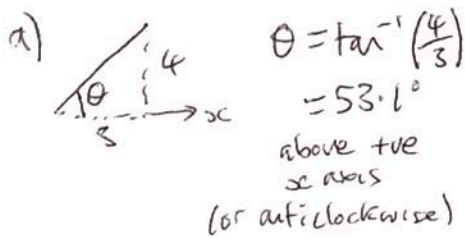 a)
θ
4
3
x
θ = tan⁻¹ (4/3)
= 53.1°
above +ve
x axis
(or anticlockwise)